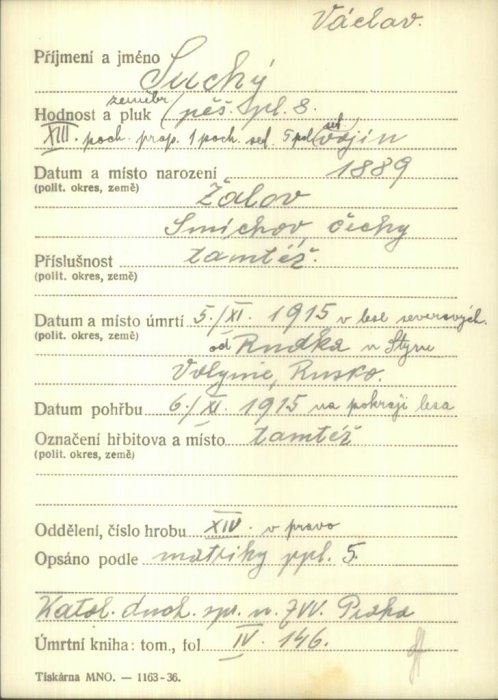 Václav.
Příjmení a jméno Suchý
zeměbr.
Hodnost a pluk pěš. pl. 8.
XIII. poch. prap. 1 poch. set. 5 pol. set. vojín
Datum a místo narození 1889
(polit. okres, země) Žalov
Smíchov Čechy
Příslušnost tamtéž.
(polit. okres, země)
Datum a místo úmrtí 5./XI. 1915 v lese severových.
(polit. okres, země) od Rudka u Styru
Volynie, Rusko.
Datum pohřbu 6./XI. 1915 na pokraji lesa
Označení hřbitova a místo tamtéž
(polit. okres, země)
Oddělení, číslo hrobu XIV. v pravo
Opsáno podle matriky ppl. 5.
Katol. duch. spr. u ZVV. Praha
Úmrtní kniha: tom., fol IV. 146.
Tiskárna MNO. — 1163-36.